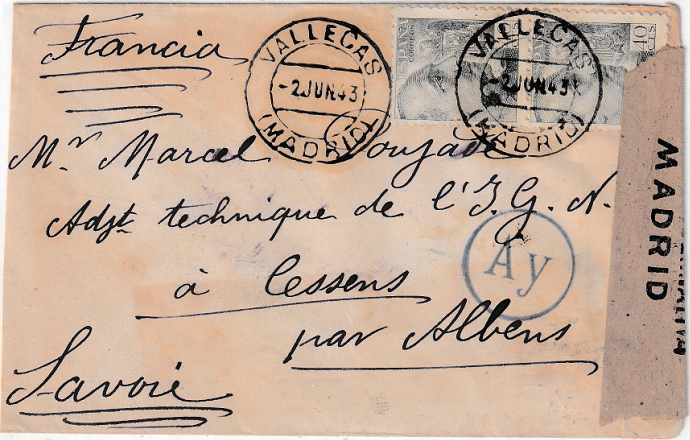 Francia
VALLECAS
-2JUN43
(MADRID)
VALLECAS
-2JUN43
(MADRID)
ESPAÑA
40
CTS
Mr Marcel Poujade
Adjt technique de l'I.G.N.
à Cessens
par Albens
Savoie
Ay
MADRID